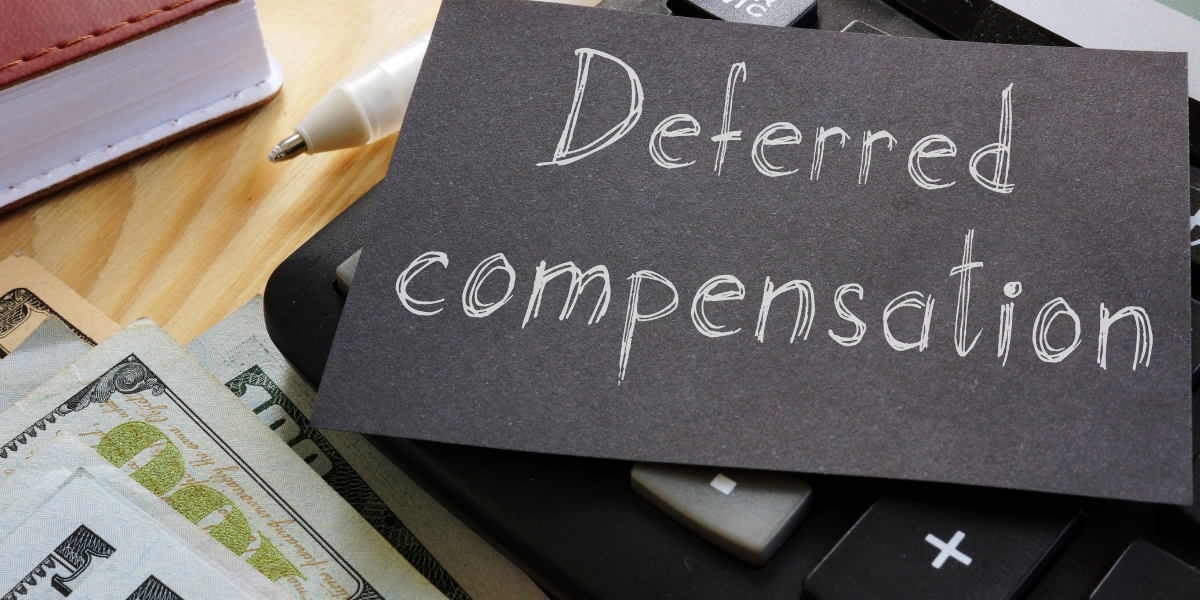 Deferred
compensation
+